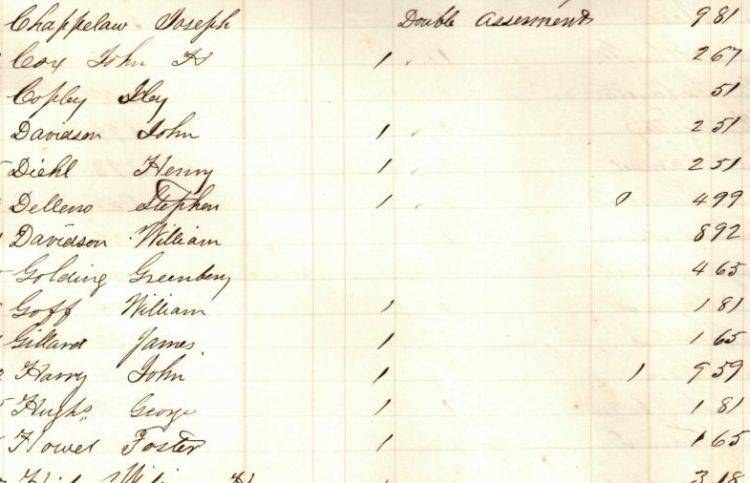 Chappelaw Joseph Double Assesments 981
Cox John H 1 267
Copley Iley 51
Davidson John 1 251
Diehl Henry 1 251
Delleno Stephen 1 499
Davidson William 892
Golding Greenbery 465
Goff William 1 181
Gillard James 1 165
Harry John 1 1 959
Hughs George 1 181
Howel Foster 1 165
318